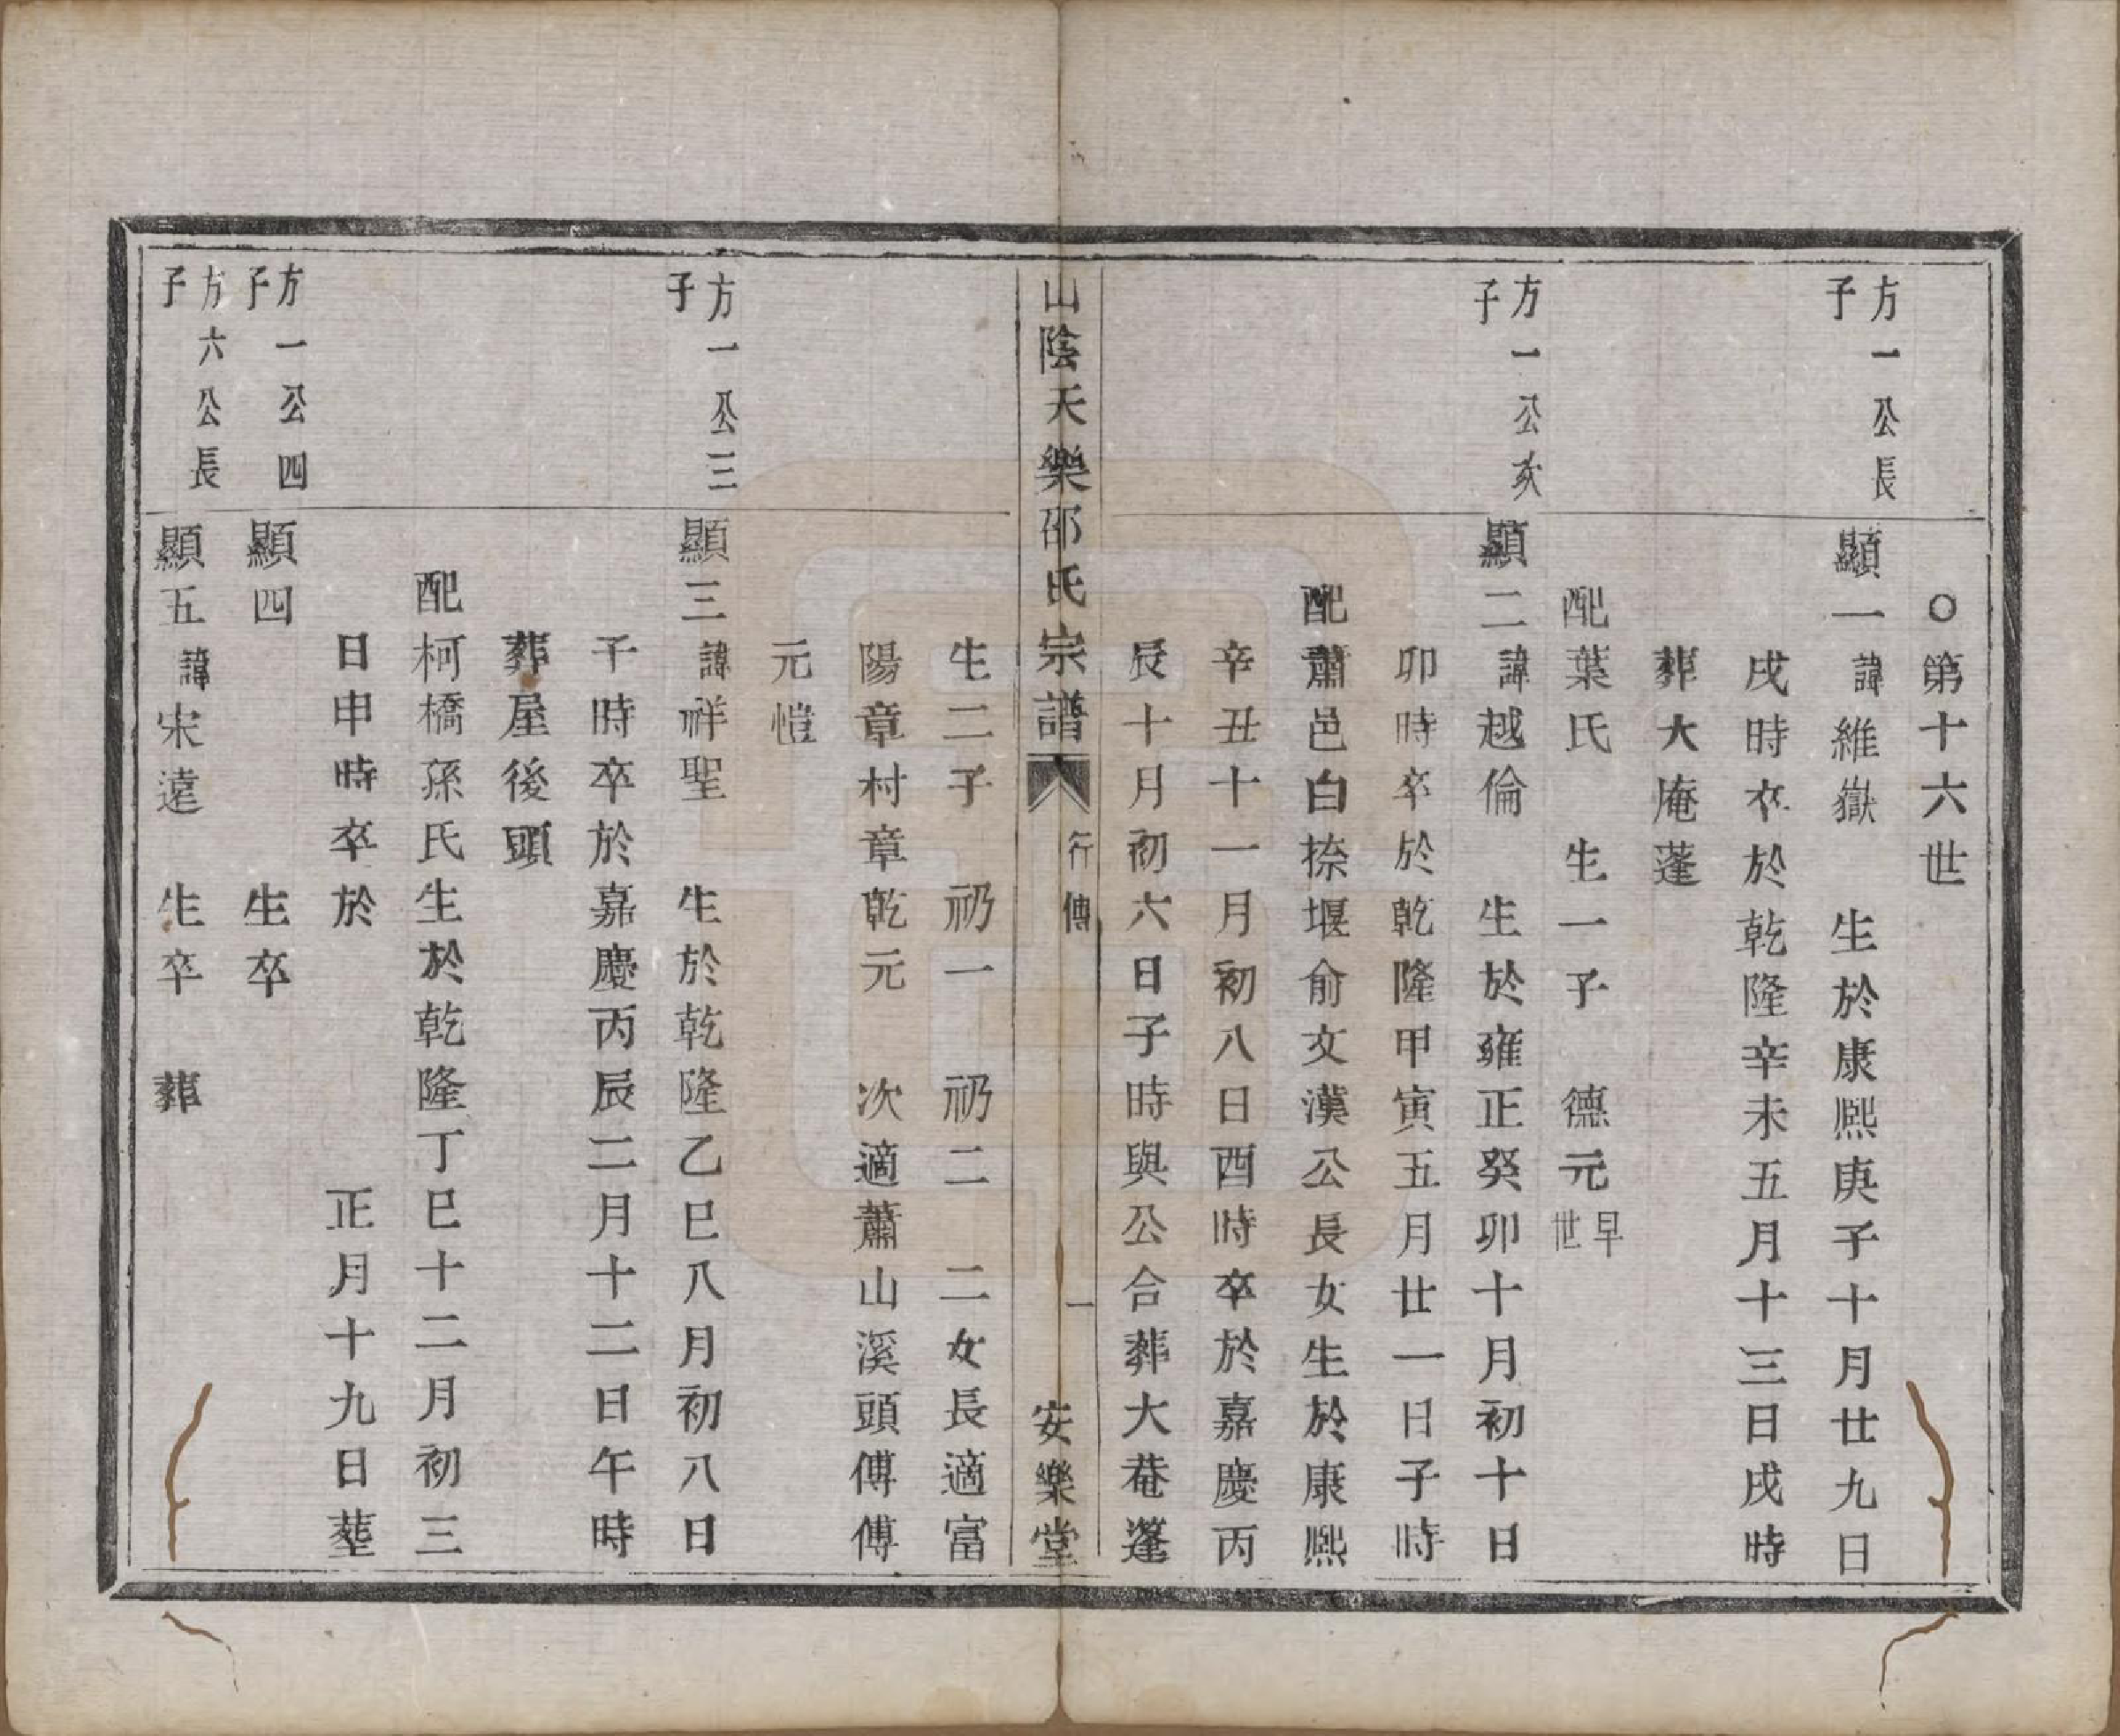 ○第十六世
方一公長子
顯一諱維嶽　生於康熙庚子十月廿九日
戌時卒於乾隆辛未五月十三日戌時
葬大庵蓬
配葉氏　生一子　德元早世
方一公次子
顯二諱越倫　生於雍正癸卯十月初十日
卯時卒於乾隆甲寅五月廿一日子時
配蕭邑白捺堰俞文漢公長女生於康熙
辛丑十一月初八日酉時卒於嘉慶丙
辰十月初六日子時與公合葬大菴篷
山陰天樂邵氏宗譜　行傳　一　安樂堂
生二子　礽一　礽二　二女長適富
陽章村章乾元　次適蕭山溪頭傅傅
元愷
方一公三子
顯三諱祥聖　生於乾隆乙巳八月初八日
子時卒於嘉慶丙辰二月十二日午時
葬屋後頭
配柯橋孫氏生於乾隆丁巳十二月初三
日申時卒於　正月十九日塟
方一公四子
顯四　生卒
方六公長子
顯五諱宋遠　生卒　葬